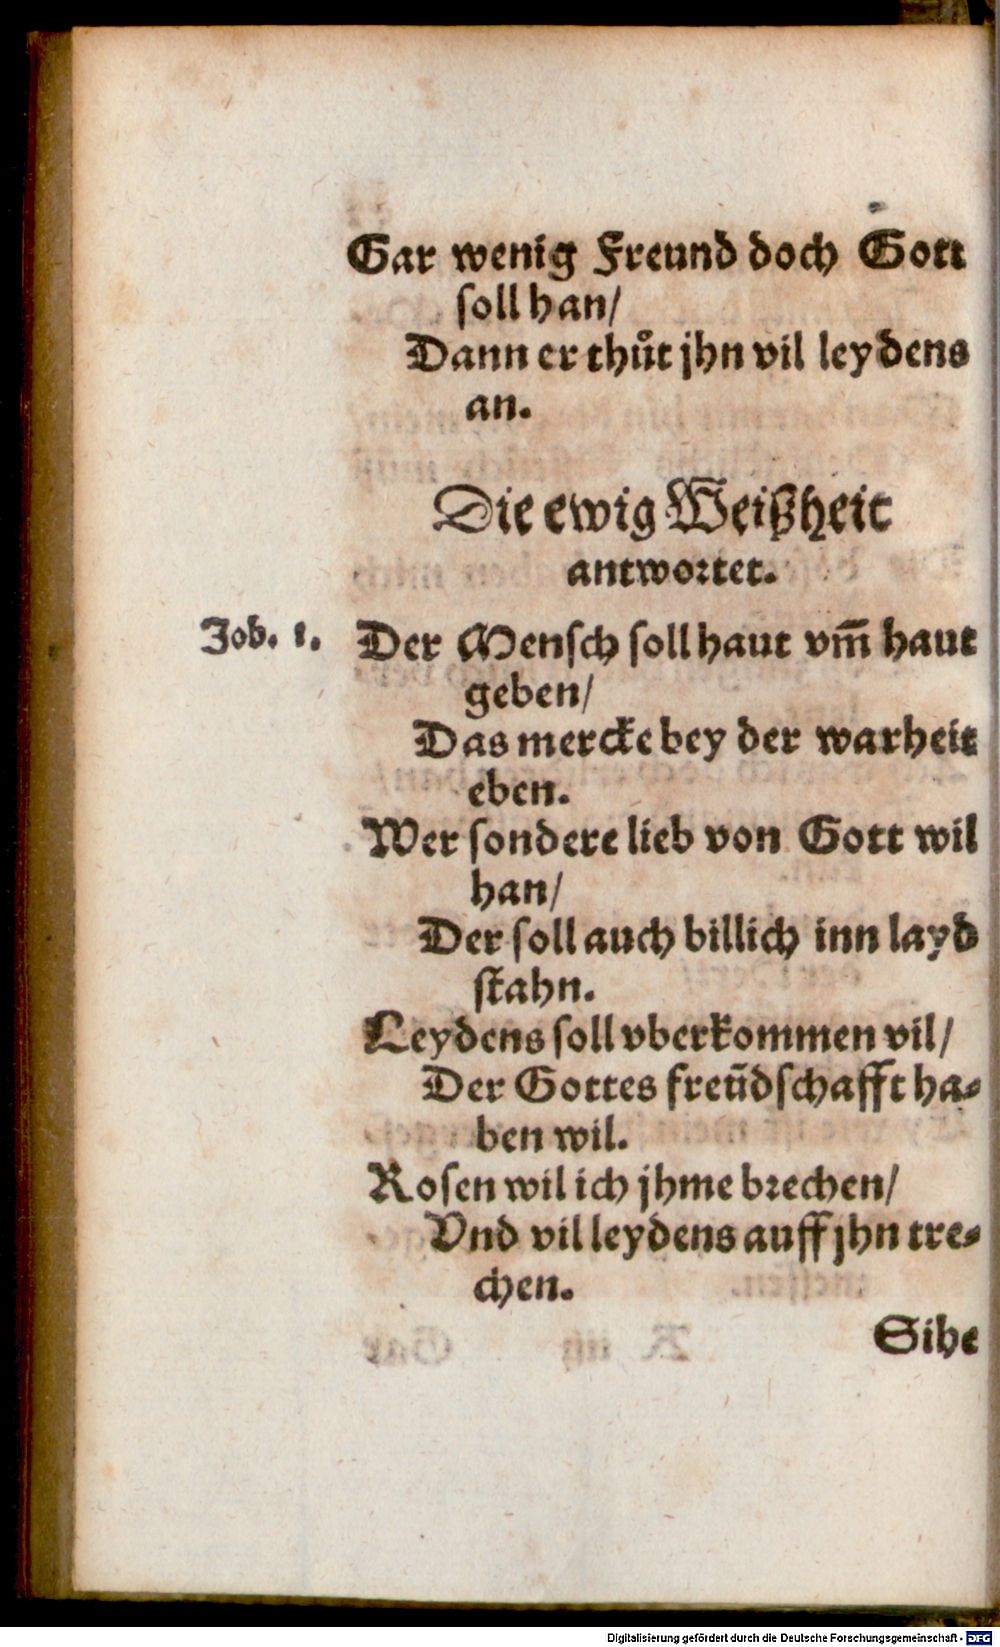 Gar wenig Freund doch Gott
soll han/
Dann er thůt jhn vil leydens
an.
Die ewig Weißheit
antwortet.
Job. 1. Der Mensch soll haut vm̄ haut
geben/
Das mercke bey der warheit
eben.
Wer sondere lieb von Gott wil
han/
Der soll auch billich inn layd
stahn.
Leydens soll vberkommen vil/
Der Gottes freūdschafft ha-
ben wil.
Rosen wil ich jhme brechen/
Vnd vil leydens auff jhn tre-
chen.
Sihe
Digitalisierung gefördert durch die Deutsche Forschungsgemeinschaft - DFG